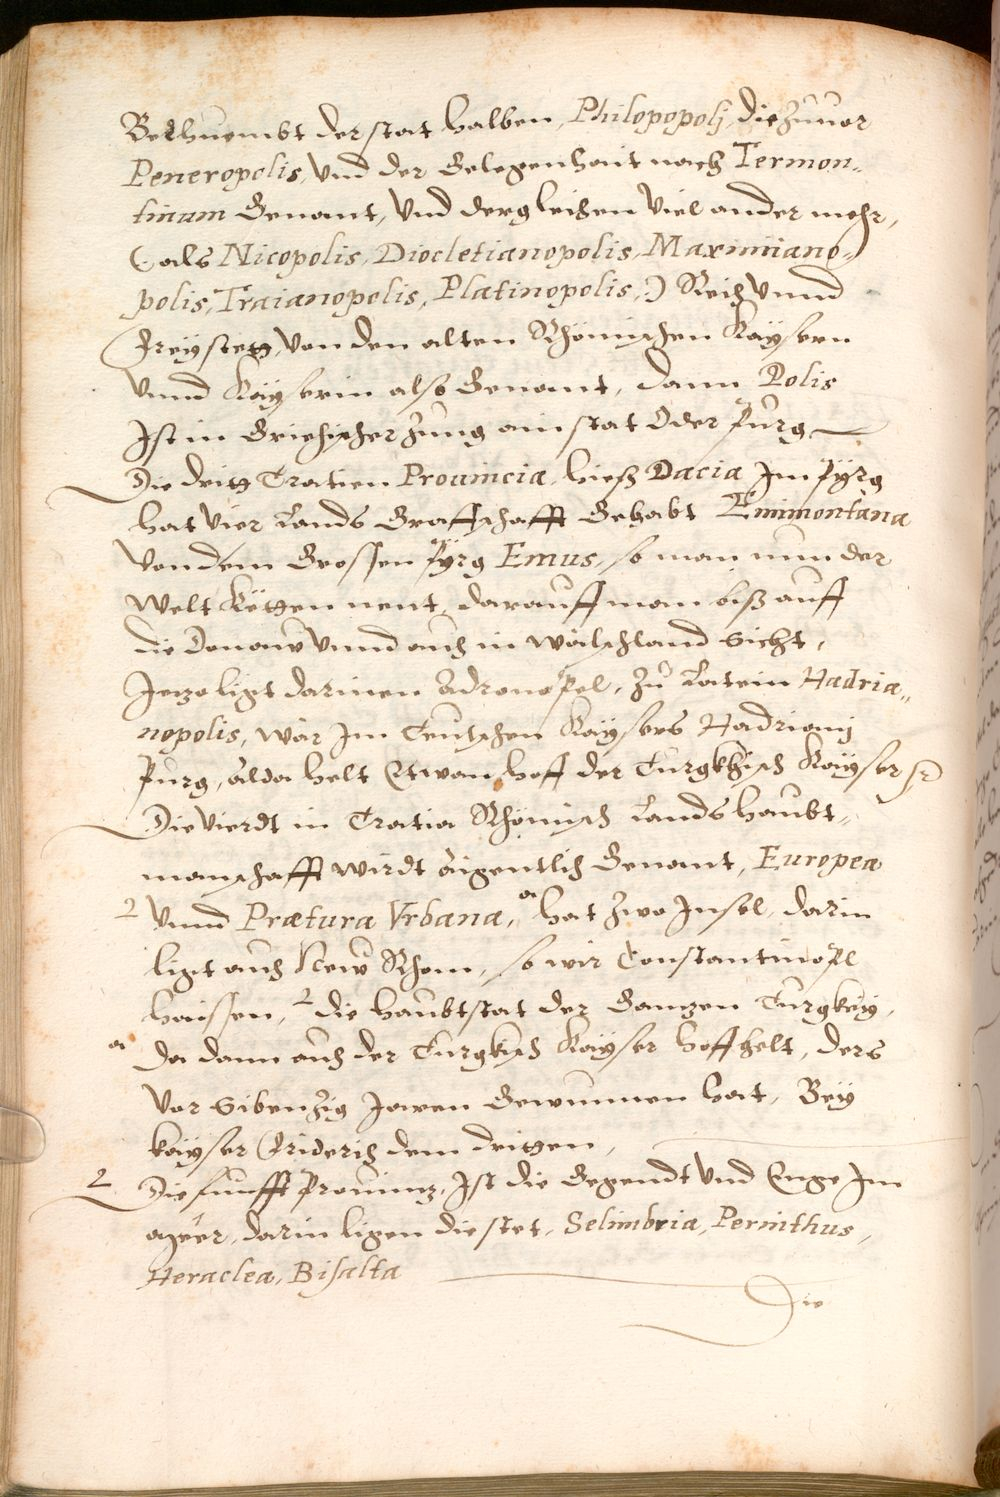 Berhuembt der stat halben, Philopopolj, die zuuor
Peneropolis, vnd der Gelegenhait nach Termon„
tinum Genant, vnd dergleichen viel ander mehr,
(: als Nicopolis, Diocletianopolis, Maximiano„
polis, Traianopolis, Platinopolis, :) Reich vnnd
Freystett, von den alten Rhömischen Kaysern
vnnd Kayserin also Genant, dann Polis
Ist in Griechischer Zung ain stat Oder Purg
Die dritt Tratien Prouincia, hieß Dacia Im Pyrg
hat vier Lands Graffschafft Gehabt Emimontana
von dem Grossen Pyrg Emus, so man nun der
Welt Ketten nent, darauff man biß auff
die Donaw vnnd auch in Wälschland sicht,
Jetzo ligt darinen Adronopel, Zu Latein Hadria„
nopolis, wär Im Teutschen Kaysers Hadrianj
Purg, alda helt Etwan hoff der Turgkhisch Kayser etc
Die vierdt in Tratia Rhömisch Landshaubt„
manschafft wirdt aigentlich Genant, Europea
2 vnnd Prætura Vrbana, a hat zwo Insel, darin
ligt auch New Rhom, so wir Constantinopl
haissen, 2 die haubtstat der Gantzen Turgkey,
a da dann auch der Turgkisch Kayser hoff helt, ders
vor Sibenzig Jaren Gewunnen hat, Bey
kayser Friderich dem dritten,
2 Die funfft Prouintz, Ist die Gegendt vnd Enge Im
Meer, darin ligen die stet, Selimbria, Perinthus,
Heraclea, Bisalta
Die